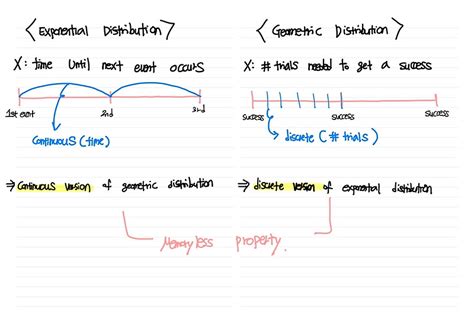 <Exponential Distribution>
X: time until next event occurs
1st event 2nd 3rd
Continuous (time)
⇒ Continuous version of geometric distribution
<Geometric Distribution>
X: # trials needed to get a success
success success success
discrete (# trials)
⇒ discrete version of exponential distribution
Memoryless property.